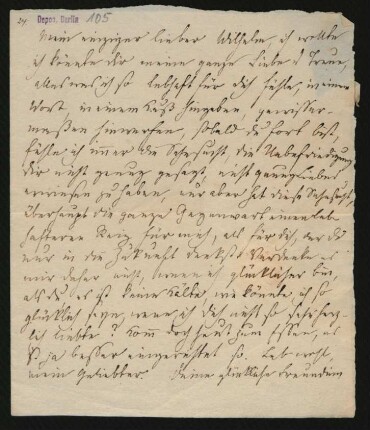 24 Depos. Berlin 105
Mein einziger lieber Wilhelm, ich wollte
ich könnte dir meine ganze Liebe u Treue,
alles was ich so lebhaft für dich fühle, in einem
Wort in einem Kuß hingeben, gewisser-
maßen hinwerfen, sobald du fort bist,
fühle ich immer die Sehnsucht die Unbefriedigung
dir nicht genug gesagt, nicht genug liebes
erwiesen zu haben, nur aber hat diese Sehnsucht,
überhaupt die ganze Gegenwart einen leb-
hafteren Reiz für mich, als für dich, der du
nur in die Zukunft denkst. Verdenke es
mir daher nicht, wenn ich glücklicher bin,
als du es ist keine Kälte, wie könnte ich so
glücklich seyn, wenn ich dich nicht so sehr herz-
lich liebte? Komm doch heut zum Essen, es
ist ja besser eingerichtet so. Leb wohl,
mein Geliebter. Deine glückliche Freundinn